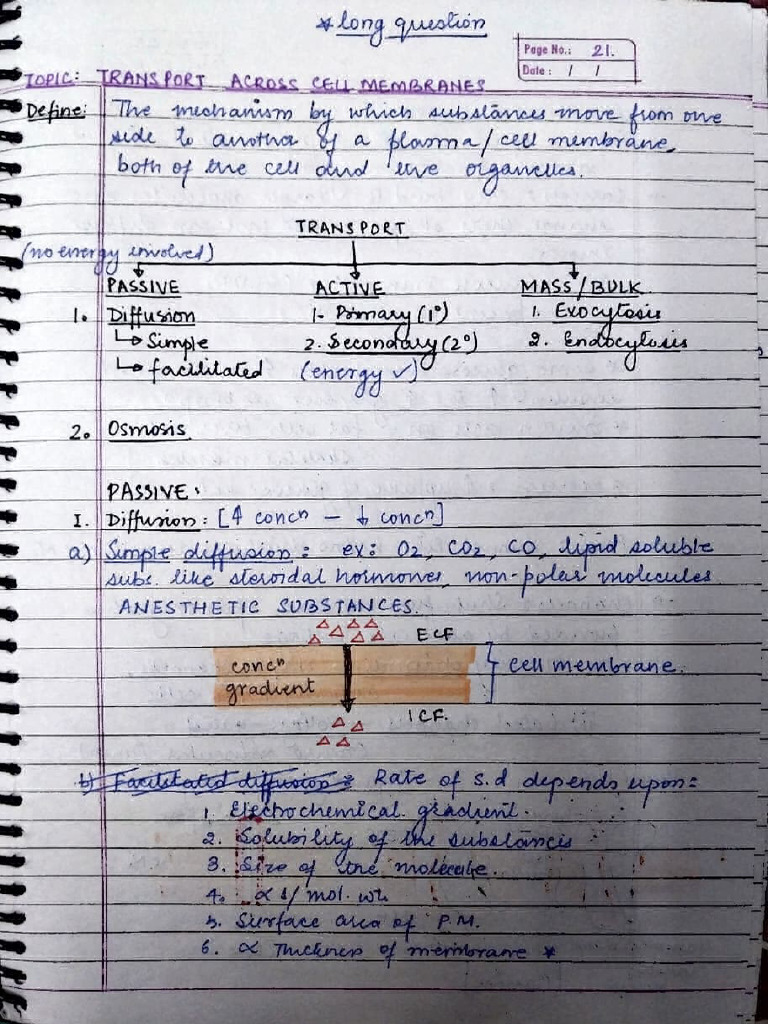 * long question
Page No.: 21.
Date: / /
TOPIC: TRANSPORT ACROSS CELL MEMBRANES
Define: The mechanism by which substances move from one
side to another of a plasma/cell membrane,
both of the cell and the organelles.
TRANSPORT
(no energy involved)
PASSIVE ACTIVE MASS/BULK
1. Diffusion 1- Primary (1°) 1. Exocytosis
↳ Simple 2. Secondary (2°) 2. Endocytosis
↳ facilitated (energy ✓)
2. Osmosis
PASSIVE:
I. Diffusion: [↑ concⁿ — ↓ concⁿ]
a) Simple diffusion: ex: O2, CO2, CO, lipid soluble
subs. like steroidal hormones, non-polar molecules
ANESTHETIC SUBSTANCES.
ECF
concⁿ
gradient
cell membrane.
ICF.
b) Facilitated diffusion: Rate of s.d depends upon:
1. Electrochemical gradient.
2. Solubility of the substances
3. Size of the molecule.
4. ∝ 1/mol. wt.
5. Surface area of P.M.
6. ∝ Thickness of membrane *